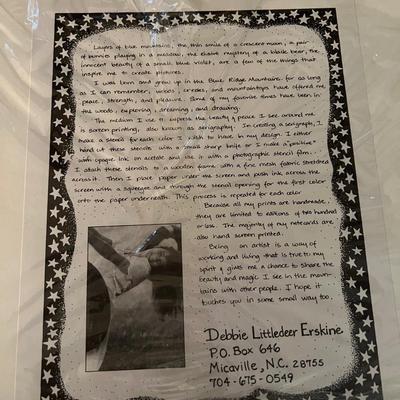 Layers of blue mountains, the thin smile of a crescent moon, a pair
of bunnies playing in a meadow, the elusive mystery of a black bear, the
innocent beauty of a small blue violet, are a few of the things that
inspire me to create pictures.
I was born and grew up in the Blue Ridge Mountains. For as long
as I can remember, woods, creeks, and mountaintops have offered me
peace, strength, and pleasure. Some of my favorite times have been in
the woods, exploring, dreaming, and drawing.
The medium I use to express the beauty & peace I see around me
is screen printing, also known as serigraphy. In creating a serigraph, I
make a stencil for each color I wish to have in my design. I either
hand cut these stencils with a small sharp knife or I make a "positive"
with opaque ink on acetate and use it with a photographic stencil film.
I attach these stencils to a wooden frame with a fine mesh fabric stretched
across it. Then I place paper under the screen and push ink across the
screen with a squeegee and through the stencil opening for the first color
onto the paper underneath. This process is repeated for each color.
Because all my prints are handmade,
they are limited to editions of two hundred
or less. The majority of my notecards are
also hand screen printed.
Being an artist is a way of
working and living that is true to my
spirit & gives me a chance to share the
beauty and magic I see in the moun-
tains with other people. I hope it
touches you in some small way too.
Debbie Littledeer Erskine
P.O. Box 646
Micaville, N.C. 28755
704-675-0549